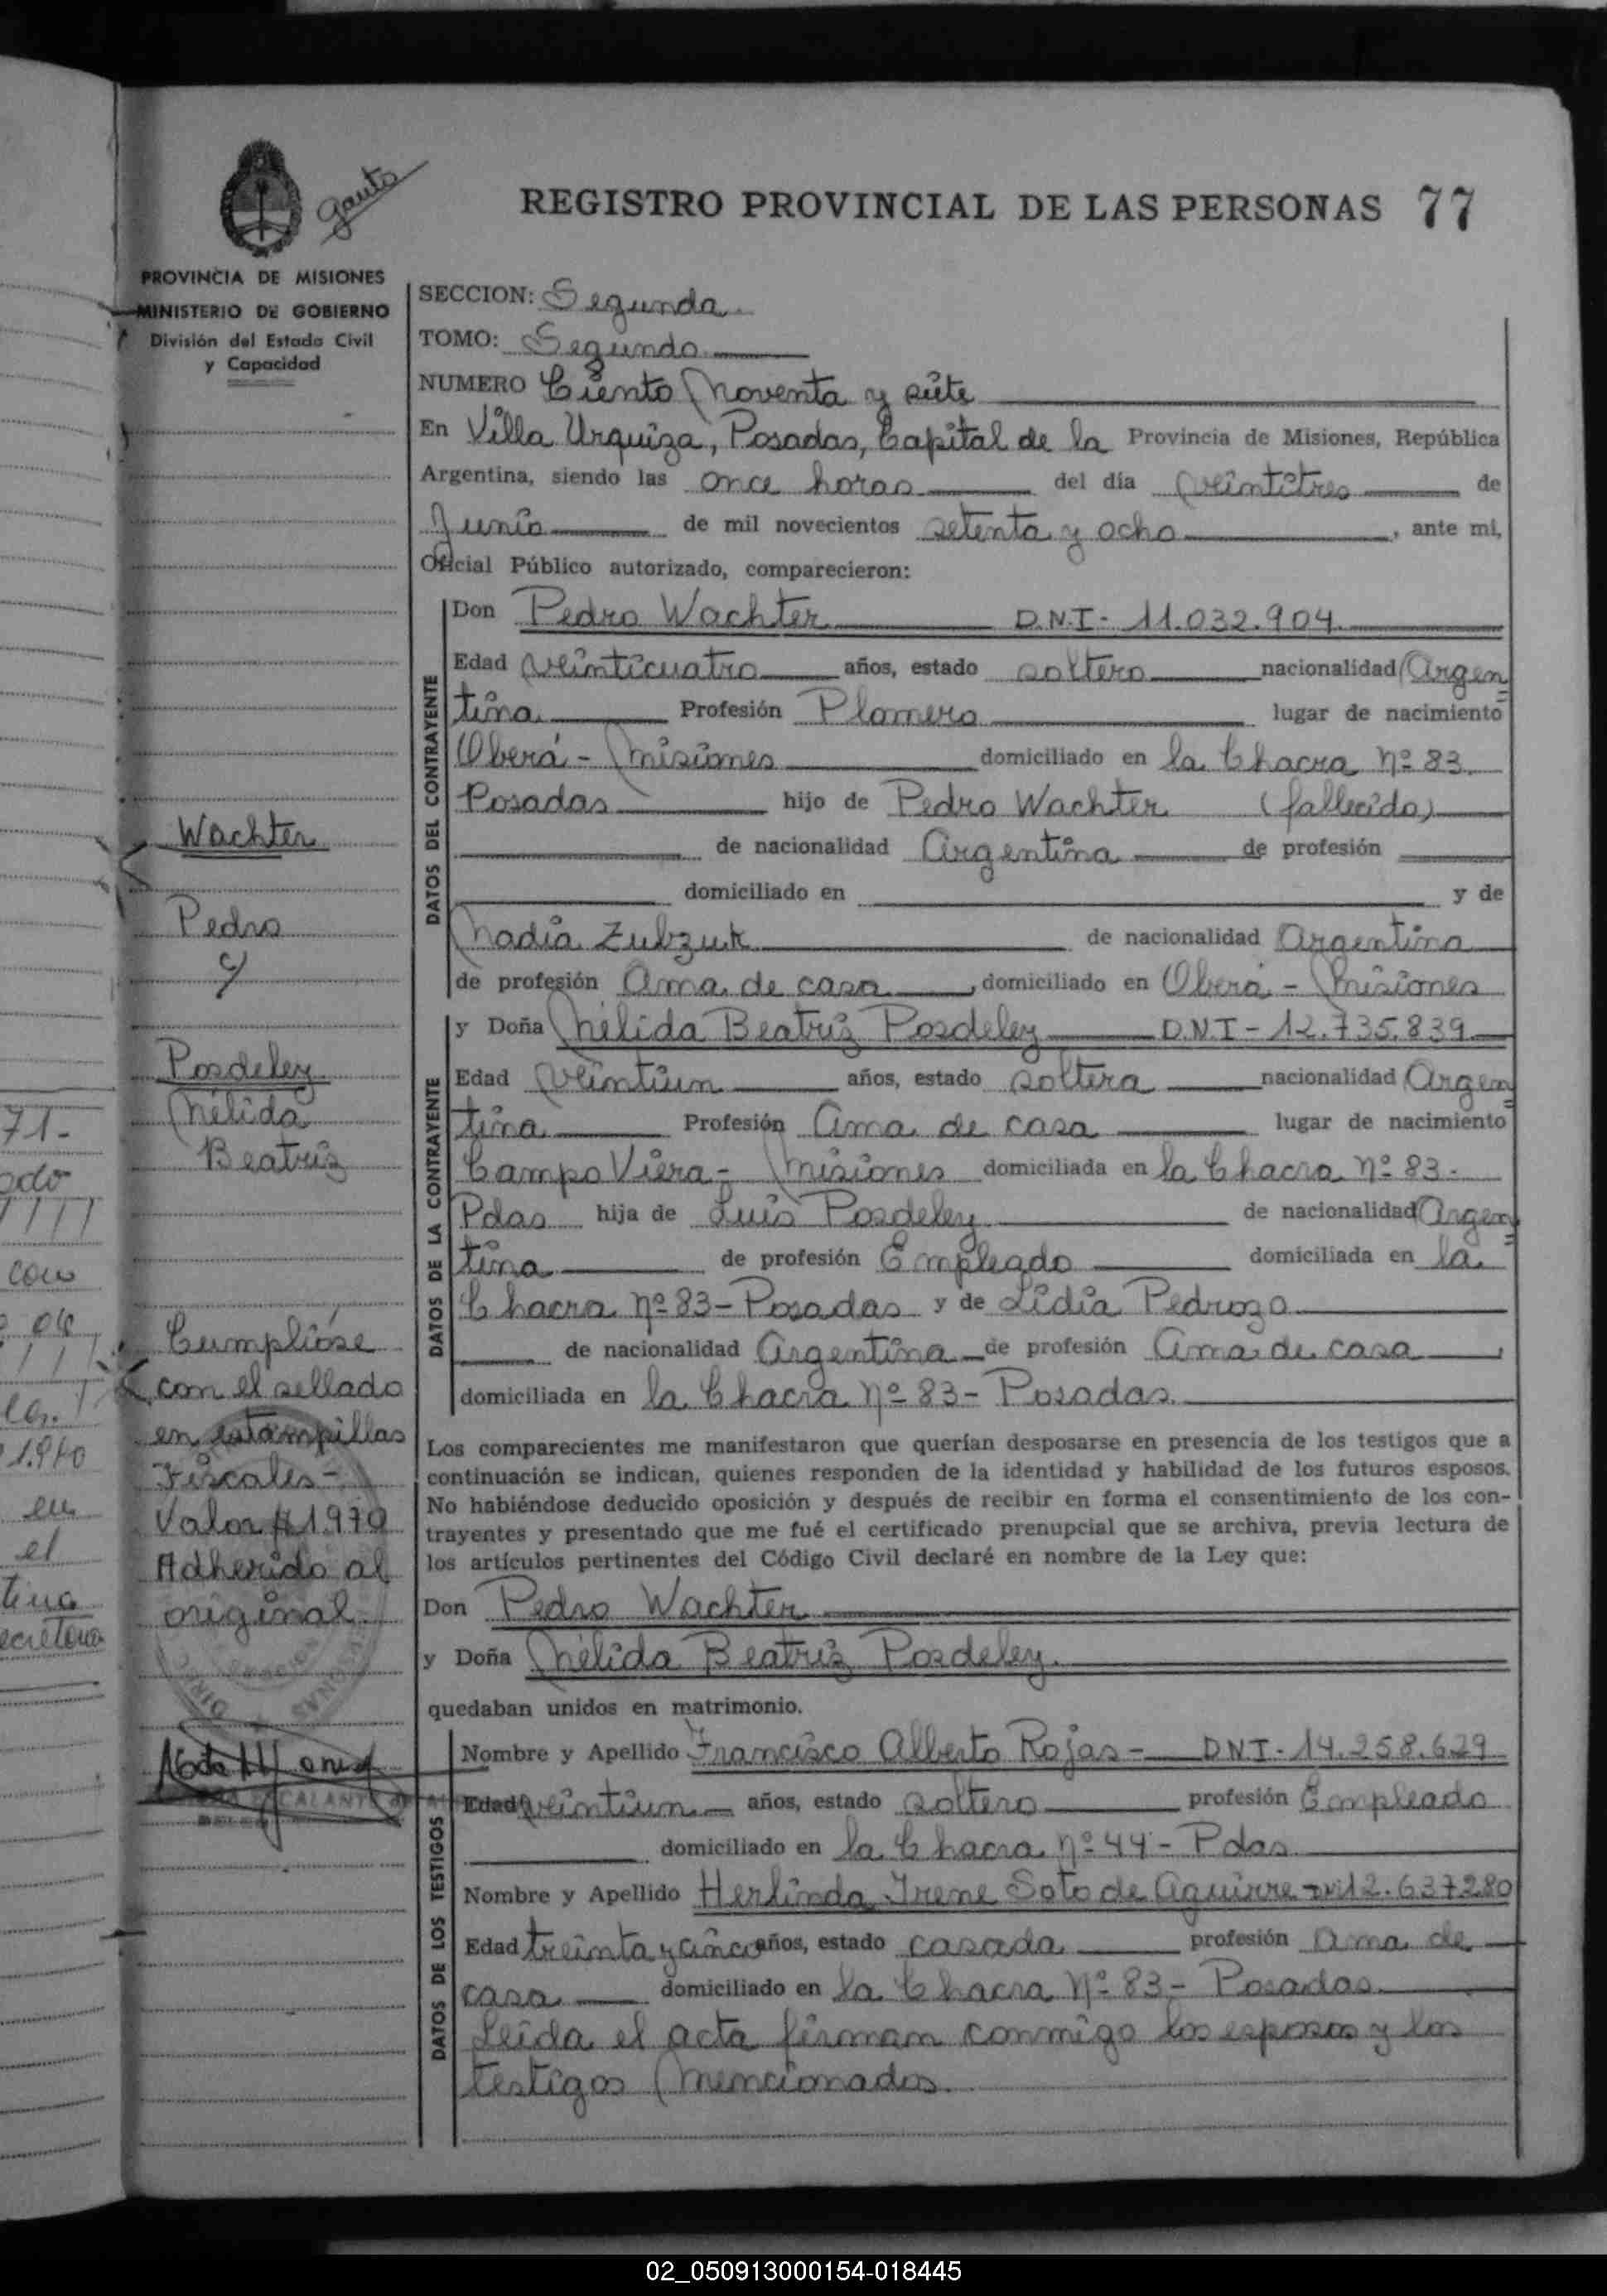 gauto
REGISTRO PROVINCIAL DE LAS PERSONAS 77
PROVINCIA DE MISIONES
MINISTERIO DE GOBIERNO
División del Estado Civil
y Capacidad
SECCION: Segunda
TOMO: Segundo
NUMERO Ciento Noventa y siete
En Villa Urquiza, Posadas, Capital de la Provincia de Misiones, República
Argentina, siendo las once horas del día veintitres de
Junio de mil novecientos setenta y ocho, ante mi,
Oficial Público autorizado, comparecieron:
DATOS DEL CONTRAYENTE
Don Pedro Wachter D.N.I - 11.032.904
Edad veinticuatro años, estado soltero nacionalidad Argen
tina Profesión Plomero lugar de nacimiento
Oberá - Misiones domiciliado en la Chacra Nº 83
Posadas hijo de Pedro Wachter (fallecido)
de nacionalidad Argentina de profesión
domiciliado en y de
Nadia Zubzuk de nacionalidad Argentina
de profesión Ama de casa, domiciliado en Oberá - Misiones
DATOS DE LA CONTRAYENTE
y Doña Nélida Beatriz Posdeley D.N.I - 12.735.839
Edad veintiun años, estado soltera nacionalidad Argen
tina Profesión Ama de casa lugar de nacimiento
Campo Viera - Misiones domiciliada en la Chacra Nº 83.
Pdas hija de Luis Posdeley de nacionalidad Argen
tina de profesión Empleado domiciliada en la
Chacra Nº 83 - Posadas y de Lidia Pedrozo
de nacionalidad Argentina de profesión Ama de casa,
domiciliada en la Chacra Nº 83 - Posadas.
Los comparecientes me manifestaron que querían desposarse en presencia de los testigos que a
continuación se indican, quienes responden de la identidad y habilidad de los futuros esposos.
No habiéndose deducido oposición y después de recibir en forma el consentimiento de los con-
trayentes y presentado que me fué el certificado prenupcial que se archiva, previa lectura de
los artículos pertinentes del Código Civil declaré en nombre de la Ley que:
Don Pedro Wachter
y Doña Nélida Beatriz Posdeley.
quedaban unidos en matrimonio.
DATOS DE LOS TESTIGOS
Nombre y Apellido Francisco Alberto Rojas - DNI - 14.258.629
Edad veintiun años, estado soltero profesión Empleado
domiciliado en la Chacra Nº 44 - Pdas
Nombre y Apellido Herlinda Irene Soto de Aguirre - DNI 12.637280
Edad treinta y cinco años, estado casada profesión ama de
casa domiciliado en la Chacra Nº 83 - Posadas
Leída el acta firman conmigo los esposos y los
testigos mencionados.
Wachter
Pedro
c/
Posdeley
Nélida
Beatriz
Cumplióse
con el sellado
en estampillas
Fiscales -
Valor $ 1970
Adherido al
original.
71-
1.970
en
el
02_050913000154-018445